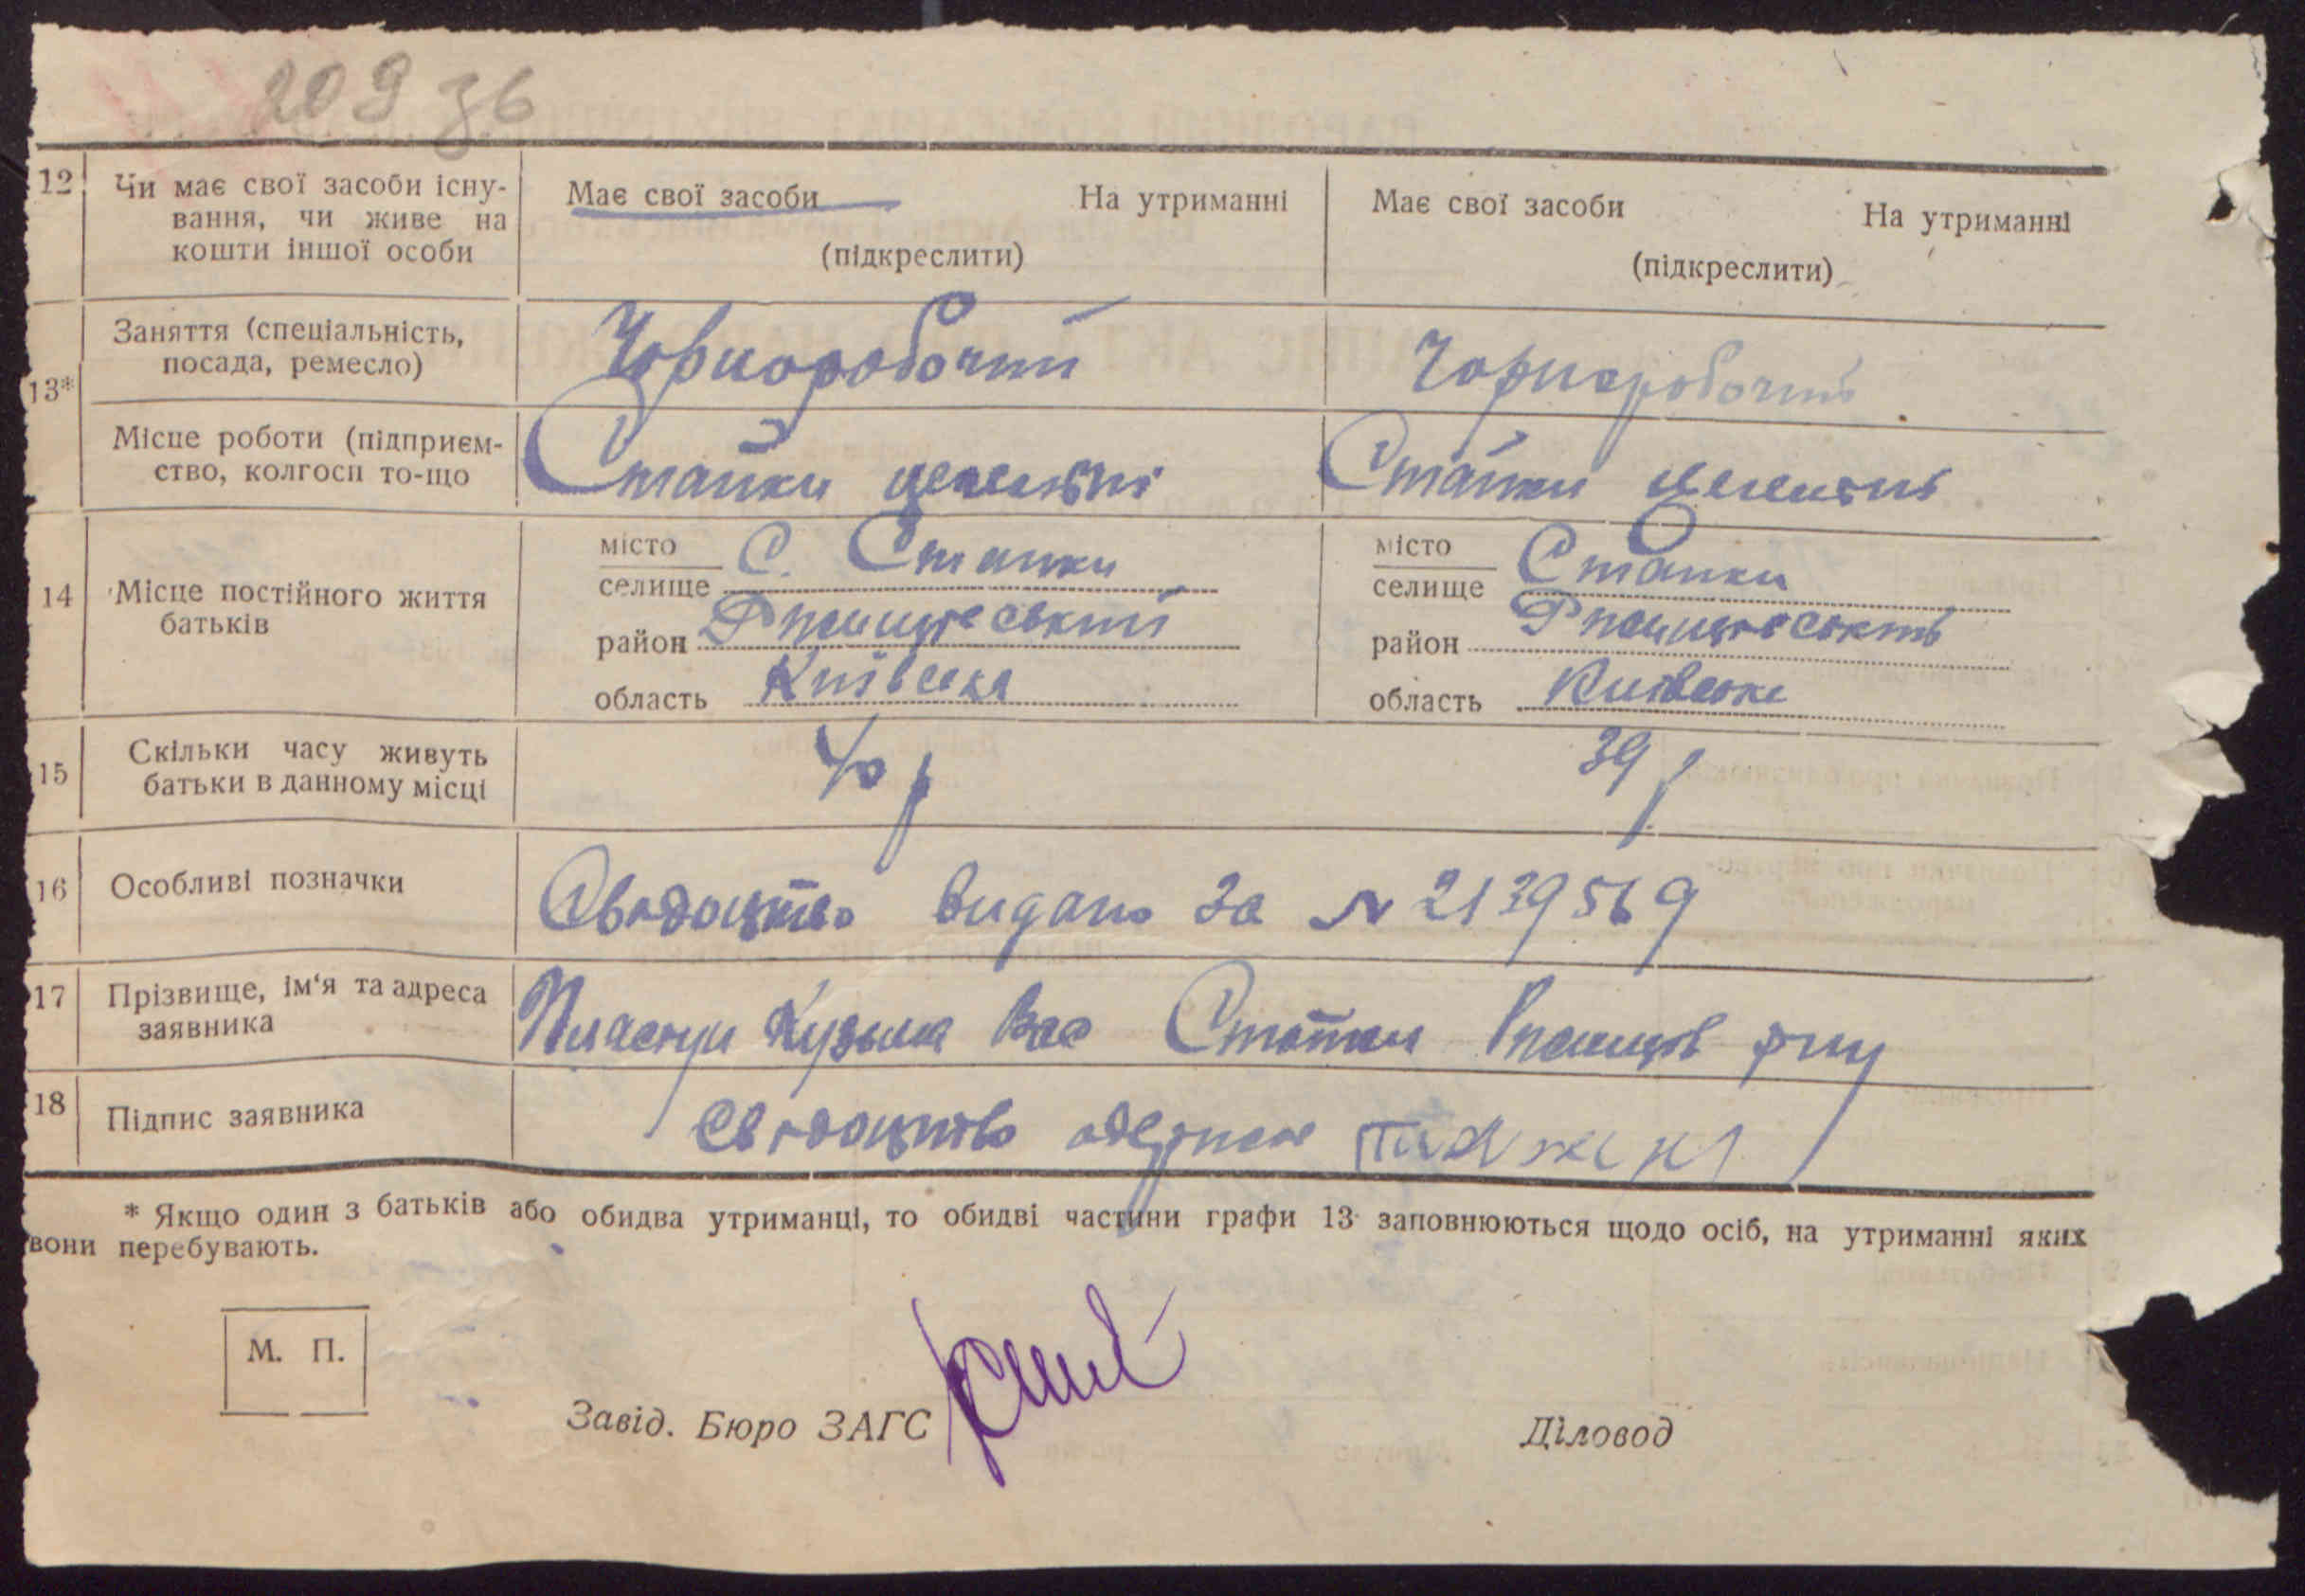 209 зб
12 Чи має свої засоби існу-
вання, чи живе на
кошти іншої особи
Має свої засоби На утриманні
(підкреслити)
Має свої засоби На утриманні
(підкреслити)
13*
Заняття (спеціальність,
посада, ремесло)
Чорноробочий
Чорноробочий
Місце роботи (підприєм-
ство, колгосп то-що
Стайки
Стайки
14 Місце постійного життя
батьків
місто
селище С. Стайки
район Ржищевський
область Київська
місто
селище Стайки
район Ржищевський
область Київська
15 Скільки часу живуть
батьки в данному місці
40 р
39 р
16 Особливі позначки
Свідоцтво видано за № 2139569
17 Прізвище, ім‘я та адреса
заявника
Кузьма Вас Стайки Ржищів р-ну
18 Підпис заявника
Свідоцтво одержав
* Якщо один з батьків або обидва утриманці, то обидві частини графи 13 заповнюються щодо осіб, на утриманні яких
вони перебувають.
М. П.
Завід. Бюро ЗАГС
Діловод